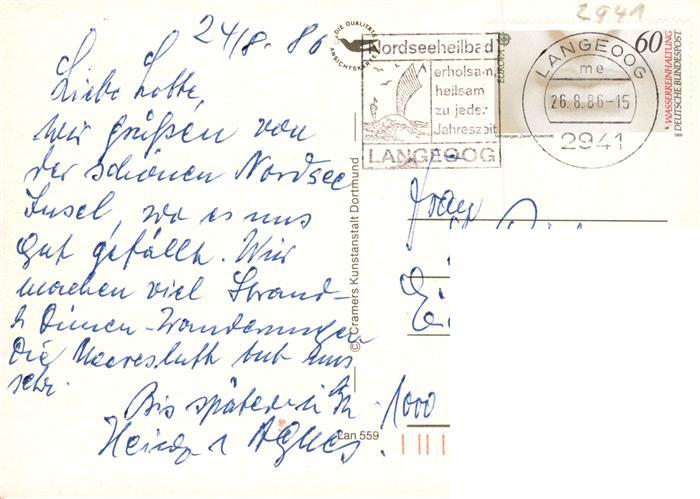 24/8. 86
Liebe Lotte,
wir grüßen von
der schönen Nordsee
Insel, wo es uns
gut gefällt. Wir
machen viel Strand-
& Dünen-Wanderungen
Die Meeresluft tut uns
sehr.
Bis später in
Heinz u Agnes.
DIE QUALITÄTS ANSICHTSKARTE
Nordseeheilbad
erholsam,
heilsam
zu jeder
Jahreszeit
LANGEOOG
2941
EUROPA
60
WASSERREINHALTUNG
DEUTSCHE BUNDESPOST
1986
LANGEOOG
me
26.8.86-15
2941
© Cramers Kunstanstalt Dortmund
Lan 559
Frau
1000